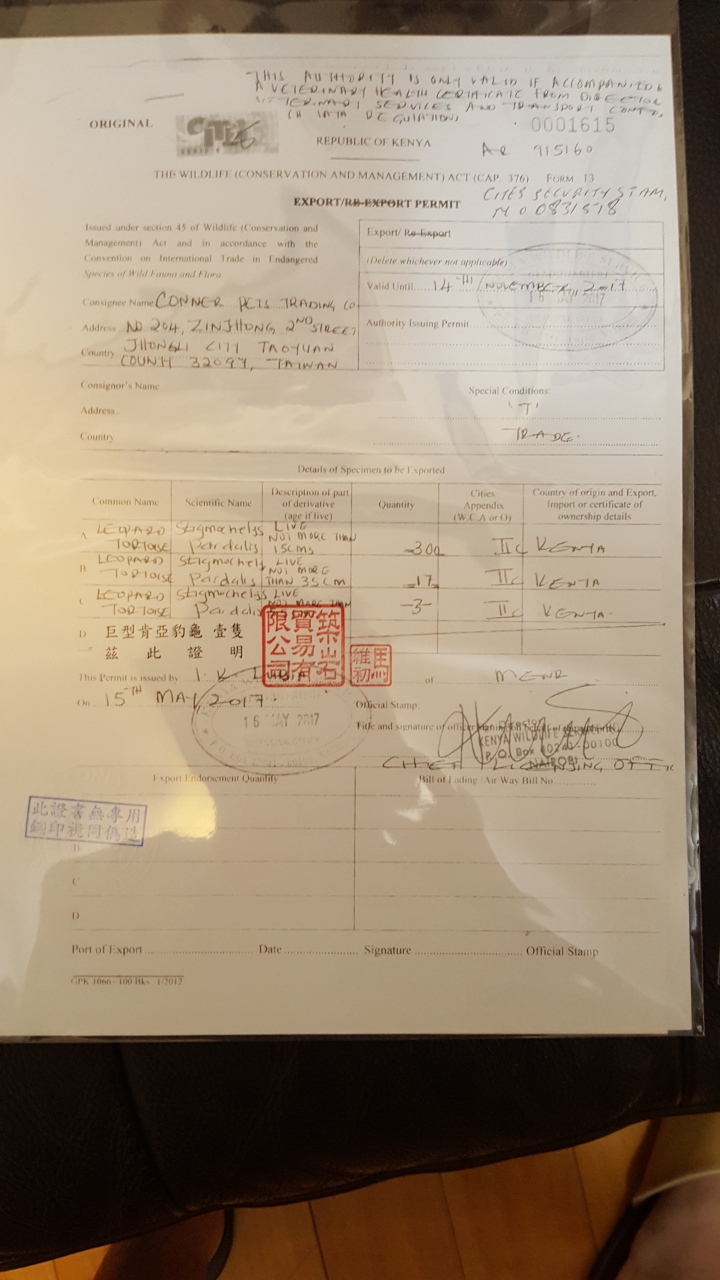 THIS AUTHORITY IS ONLY VALID IF ACCOMPANIED
A VETERINARY HEALTH CERTIFICATE FROM DIRECTOR
VETERINARY SERVICES AND TRANSPORT
IATA REGULATIONS
ORIGINAL
CITES
0001615
REPUBLIC OF KENYA
AR 915160
THE WILDLIFE (CONSERVATION AND MANAGEMENT) ACT (CAP. 376) FORM 13
CITES SECURITY STAM
NO 0831578
EXPORT/RE-EXPORT PERMIT
Issued under section 45 of Wildlife (Conservation and
Management) Act and in accordance with the
Convention on International Trade in Endangered
Species of Wild Fauna and Flora
Export/ Re-Export
(Delete whichever not applicable)
Valid Until 14TH NOVEMBER, 2017
Authority Issuing Permit
Consignee Name CONNER PETS TRADING CO
Address NO 204, ZINJHONG 2ND STREET
JHONGLI CITY TAOYUAN
Country COUNTY 32097, TAIWAN
Consignor's Name
Address
Country
Special Conditions:
'T'
TRADE
Details of Specimen to be Exported
Common Name
Scientific Name
Description of part
of derivative
(age if live)
Quantity
Cities
Appendix
(W.C.A or O)
Country of origin and Export,
Import or certificate of
ownership details
A LEOPARD TORTOISE Stigmochelys Pardalis LIVE NOT MORE THAN 15CMS -300 II C KENYA
B LEOPARD TORTOISE Stigmochelys Pardalis LIVE NOT MORE THAN 35CM -17- II C KENYA
C LEOPARD TORTOISE Stigmochelys Pardalis LIVE NOT MORE THAN -3- II C KENYA
D 巨型肯亞豹龜 壹隻
茲 此 證 明
築山石
貿易有
限公司
馬維初
This Permit is issued by
of MENR
On 15TH MAY, 2017.
15 MAY 2017
Official Stamp
Title and signature of officer
KENYA WILDLIFE SERVICE
P. O. Box 40241-00100
NAIROBI
CHIEF LICENSING
Export Endorsement Quantity
Bill of Lading /Air Way Bill No
此證書無專用
鋼印視同偽造
B
C
D
Port of Export Date Signature Official Stamp
GPK 1066- 100 Bks 1/2012